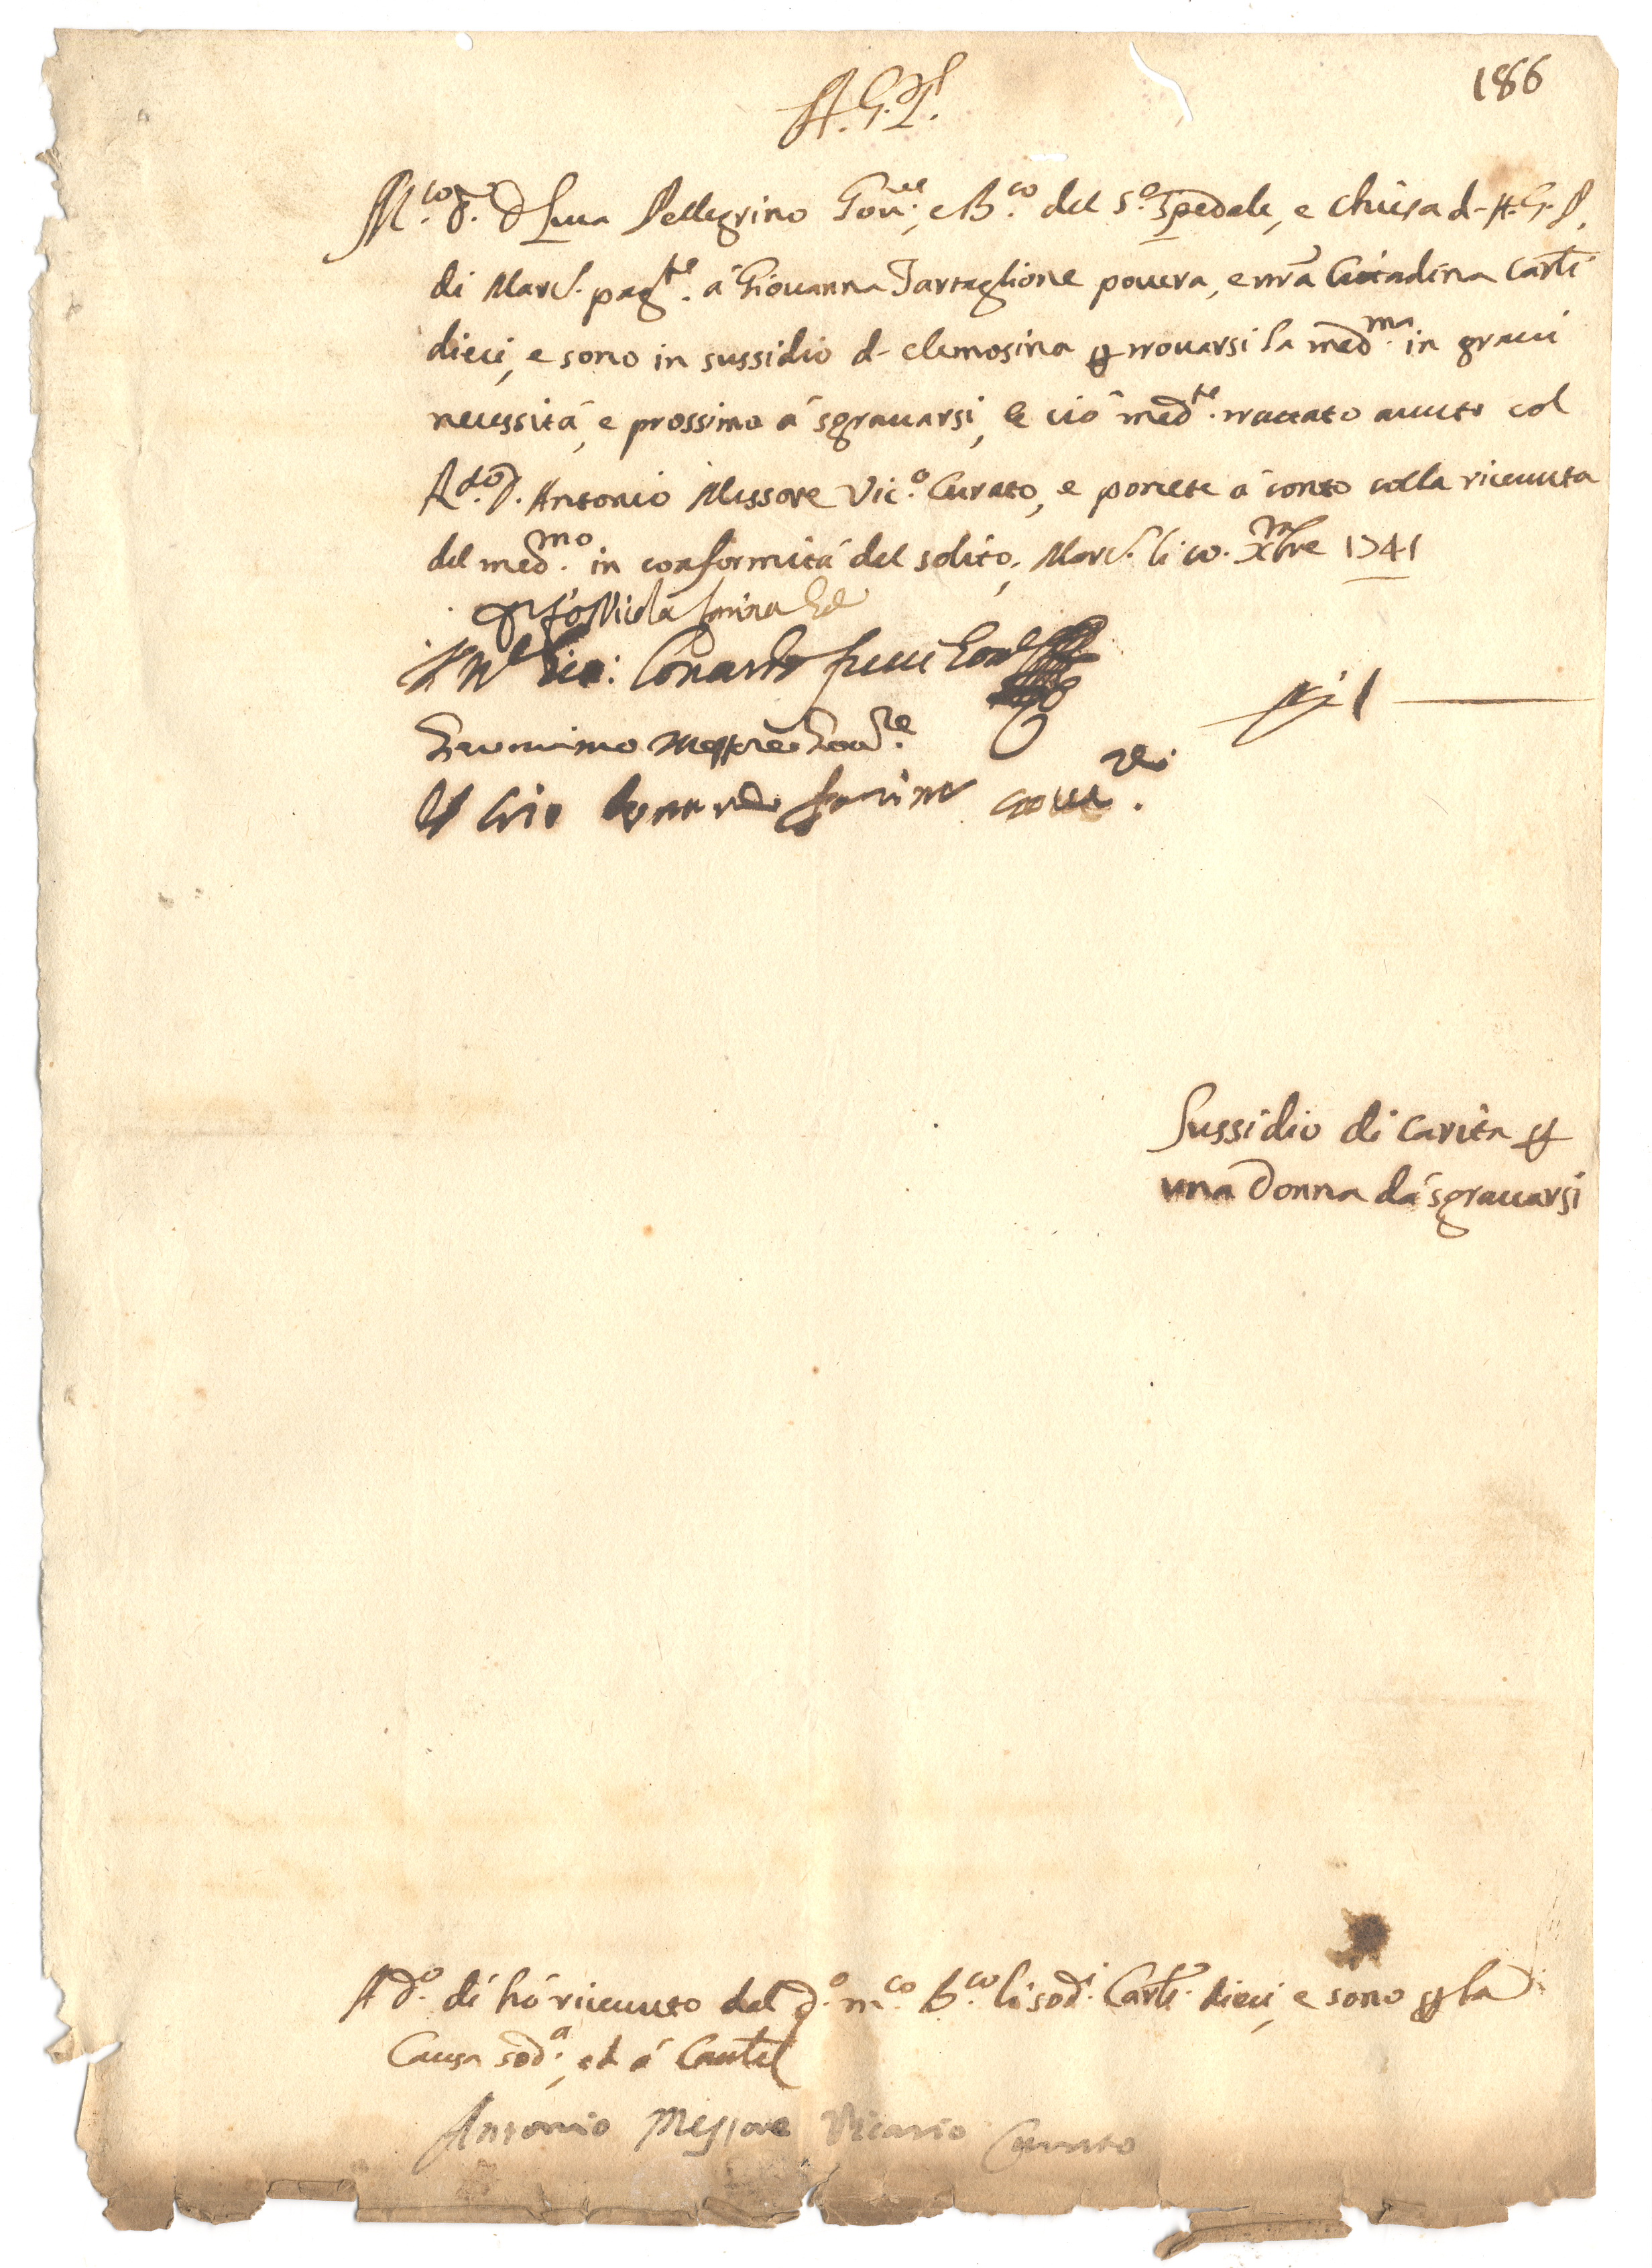 186
A. G. P.
M.co S.r D Luca Pellegrino Gou.re, e B.co del S.o Spedale, e chiesa d- A. G. P.
di Marc. pag.te á Giouanna Tartaglione pouera, e nrã Cittadina Carli
dieci, e sono in sussidio d- elemosina p trouarsi la med.ma in graui
necessitá, e prossima á sgrauarsi, e ció med.te trattato auuto col
R.do D. Antonio Messore Vic.o Curato, e ponete á conto colla riceuuta
del med.mo in conformitá del solito, Marc. li 10. Xbre 1741
Nicola farina
Messore Gou.re
farina Gou.re
Sussidio di Carità p
una Donna dá sgrauarsi
A d.o dí hó riceuuto dal d.o m.co b.co li sod.i Carli dieci, e sono p la
Causa sod.a, ed á Cautel
Antonio Messore Vicario Curato